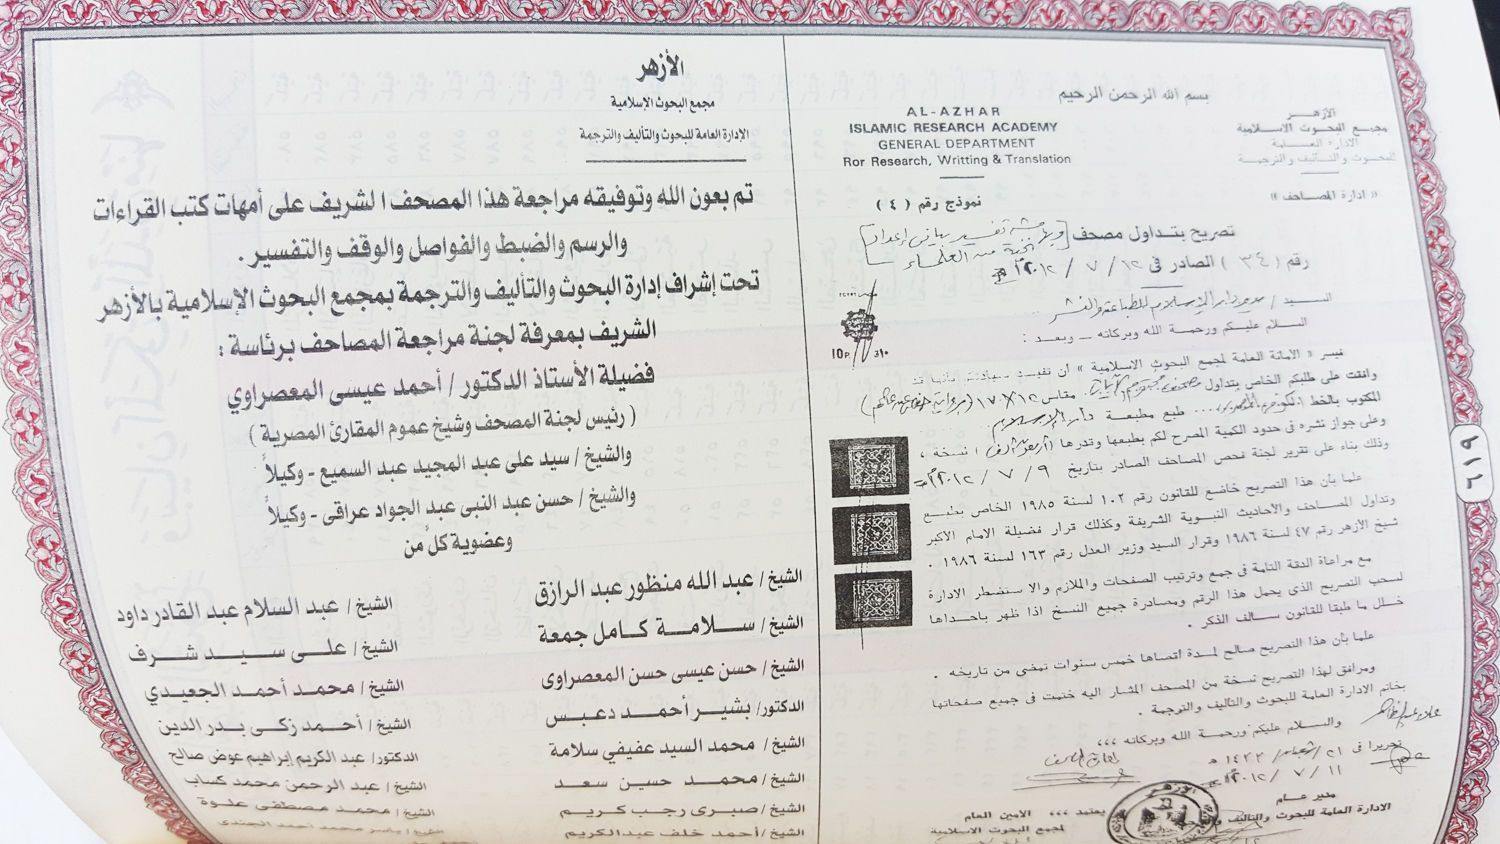 بسم الله الرحمن الرحيم
الأزهر
مجمع البحوث الاسلامية
الادارة العامة
للبحوث والتأليف والترجمة
AL-AZHAR
ISLAMIC RESEARCH ACADEMY
GENERAL DEPARTMENT
Ror Research, Writting & Translation
« ادارة المصاحف »
نموذج رقم ( ٤ )
تصريح بتداول مصحف [وبهامشه تفسير وبيان إعداد
نخبة من العلماء]
رقم ( ٣٤ ) الصادر فى ١٢ / ٧ / ٢٠١٢ م
السيد / مدير دار الإسلام للطباعة والنشر
السلام عليكم ورحمة الله وبركاته ــ وبعد :
10P.
تيسر « الامانة العامة لمجمع البحوث الاسلامية » أن تفيد سيادتكم بأنها قد
وافقت على طلبكم الخاص بتداول مصحف مقاس ١٢×١٧
المكتوب بالخط طبع مطبعة دار الإسلام
وعلى جواز نشره فى حدود الكمية المصرح لكم بطبعها وقدرها نسخة ،
وذلك بناء على تقرير لجنة فحص المصاحف الصادر بتاريخ ٩ / ٧ / ٢٠١٢ م
علما بأن هذا التصريح خاضع للقانون رقم ١٠٢ لسنة ١٩٨٥ الخاص بطبع
وتداول المصاحف والاحاديث النبوية الشريفة وكذلك قرار فضيلة الامام الاكبر
شيخ الازهر رقم ٤٧ لسنة ١٩٨٦ وقرار السيد وزير العدل رقم ١٦٣ لسنة ١٩٨٦ .
مع مراعاة الدقة التامة فى جمع وترتيب الصفحات والملازم والا ستضطر الادارة
لسحب التصريح الذى يحمل هذا الرقم ومصادرة جميع النسخ اذا ظهر باحداها
خلل ما طبقا للقانون سالف الذكر .
علما بأن هذا التصريح صالح لمدة اقصاها خمس سنوات تمضى من تاريخه .
ومرافق لهذا التصريح نسخة من المصحف المشار اليه ختمت فى جميع صفحاتها
بخاتم الادارة العامة للبحوث والتأليف والترجمة .
والسلام عليكم ورحمة الله وبركاته ،،،
تحريرا فى ٢١ / شعبان / ١٤٣٣ هـ
١١ / ٧ / ٢٠١٢ م
مدير عام
الادارة العامة للبحوث والتأليف والترجمة
يعتمد ،،، الامين العام
لمجمع البحوث الاسلامية
الأزهر
٦١٩
الأزهر
مجمع البحوث الإسلامية
الإدارة العامة للبحوث والتأليف والترجمة
تم بعون الله وتوفيقه مراجعة هذا المصحف الشريف على أمهات كتب القراءات
والرسم والضبط والفواصل والوقف والتفسير .
تحت إشراف إدارة البحوث والتأليف والترجمة بمجمع البحوث الإسلامية بالأزهر
الشريف بمعرفة لجنة مراجعة المصاحف برئاسة :
فضيلة الأستاذ الدكتور / أحمد عيسى المعصراوي
( رئيس لجنة المصحف وشيخ عموم المقارئ المصرية )
والشيخ / سيد على عبد المجيد عبد السميع - وكيلاً
والشيخ / حسن عبد النبى عبد الجواد عراقى - وكيلاً
وعضوية كلٌ من
الشيخ / عبد الله منظور عبد الرازق
الشيخ / عبد السلام عبد القادر داود
الشيخ / سلامة كامل جمعة
الشيخ / على سيد شرف
الشيخ / حسن عيسى حسن المعصراوى
الشيخ / محمد أحمد الجعيدي
الدكتور / بشير أحمد دعبس
الشيخ / أحمد زكى بدر الدين
الشيخ / محمد السيد عفيفي سلامة
الدكتور / عبد الكريم إبراهيم عوض صالح
الشيخ / محمد حسين سعد
الشيخ / عبد الرحمن محمد كساب
الشيخ / صبرى رجب كريم
الشيخ / محمد مصطفى علوة
الشيخ / أحمد خلف عبدالكريم
الشيخ / ياسر محمد أحمد الجندى